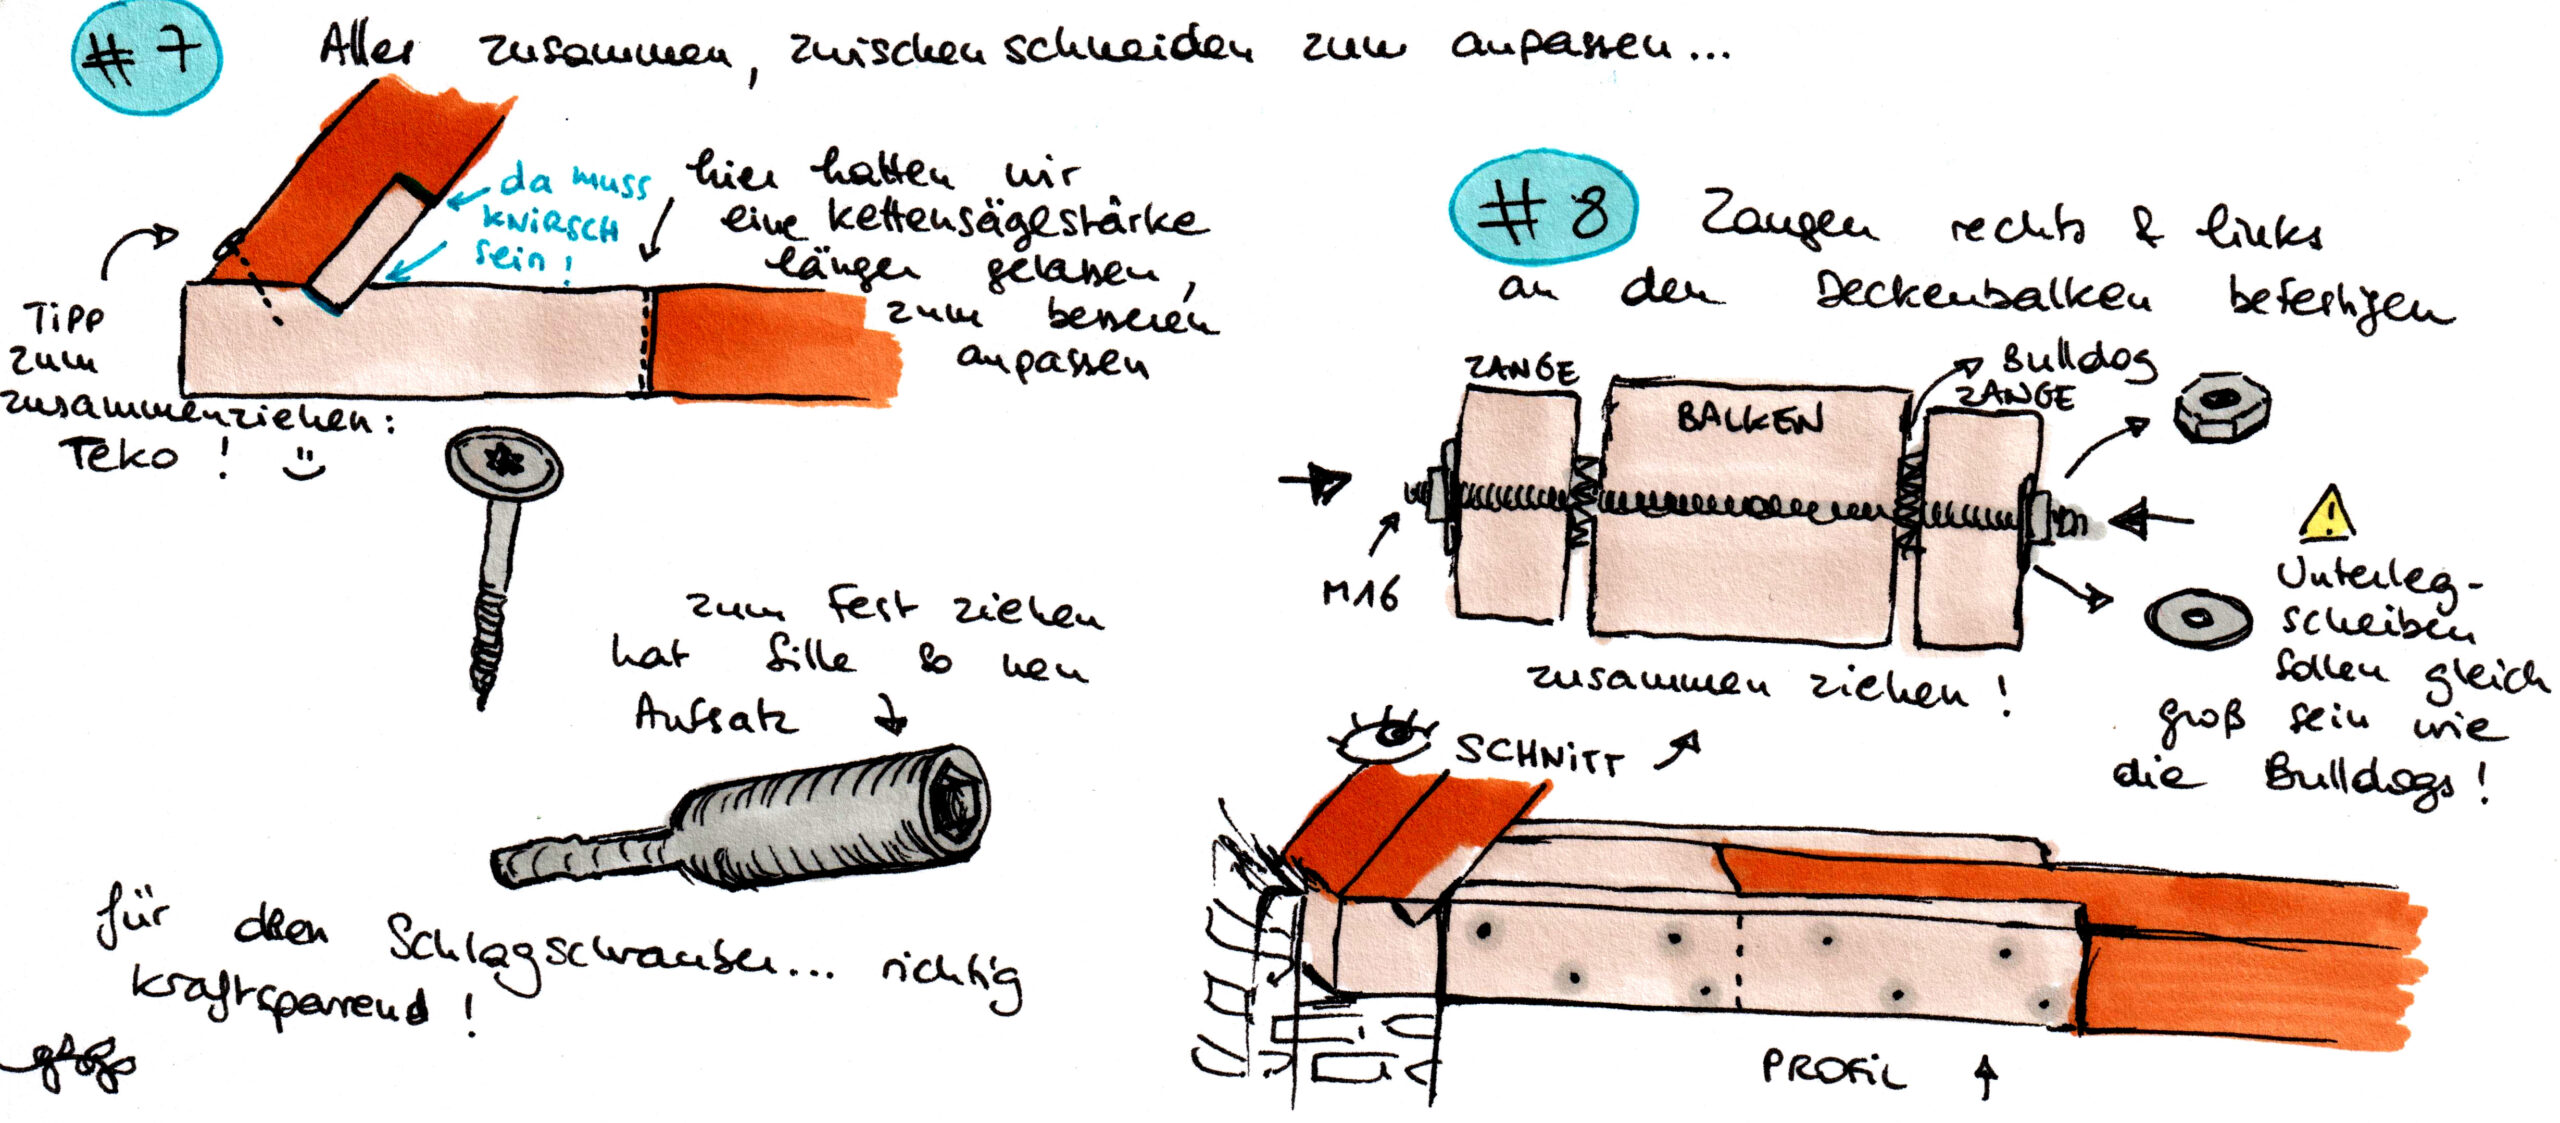 #7
Alles zusammen, zwischenschneiden zum anpassen...
da muss
KNiRSCH
sein!
hier hatten wir
eine Kettensägestärke
länger gelassen,
zum besseren
anpassen
TiPP
zum
zusammenziehen:
Teko ! :)
zum Fest ziehen
hat Sille so nen
Aufsatz
für den Schlagschrauber... richtig
kraftsparrend!
#8
Zangen rechts & links
an den Deckenbalken befestigen
ZANGE
BALKEN
Bulldog
ZANGE
M16
zusammen ziehen!
Unterleg-
scheiben
sollen gleich
groß sein wie
die Bulldogs!
SCHNiTT
PROFiL